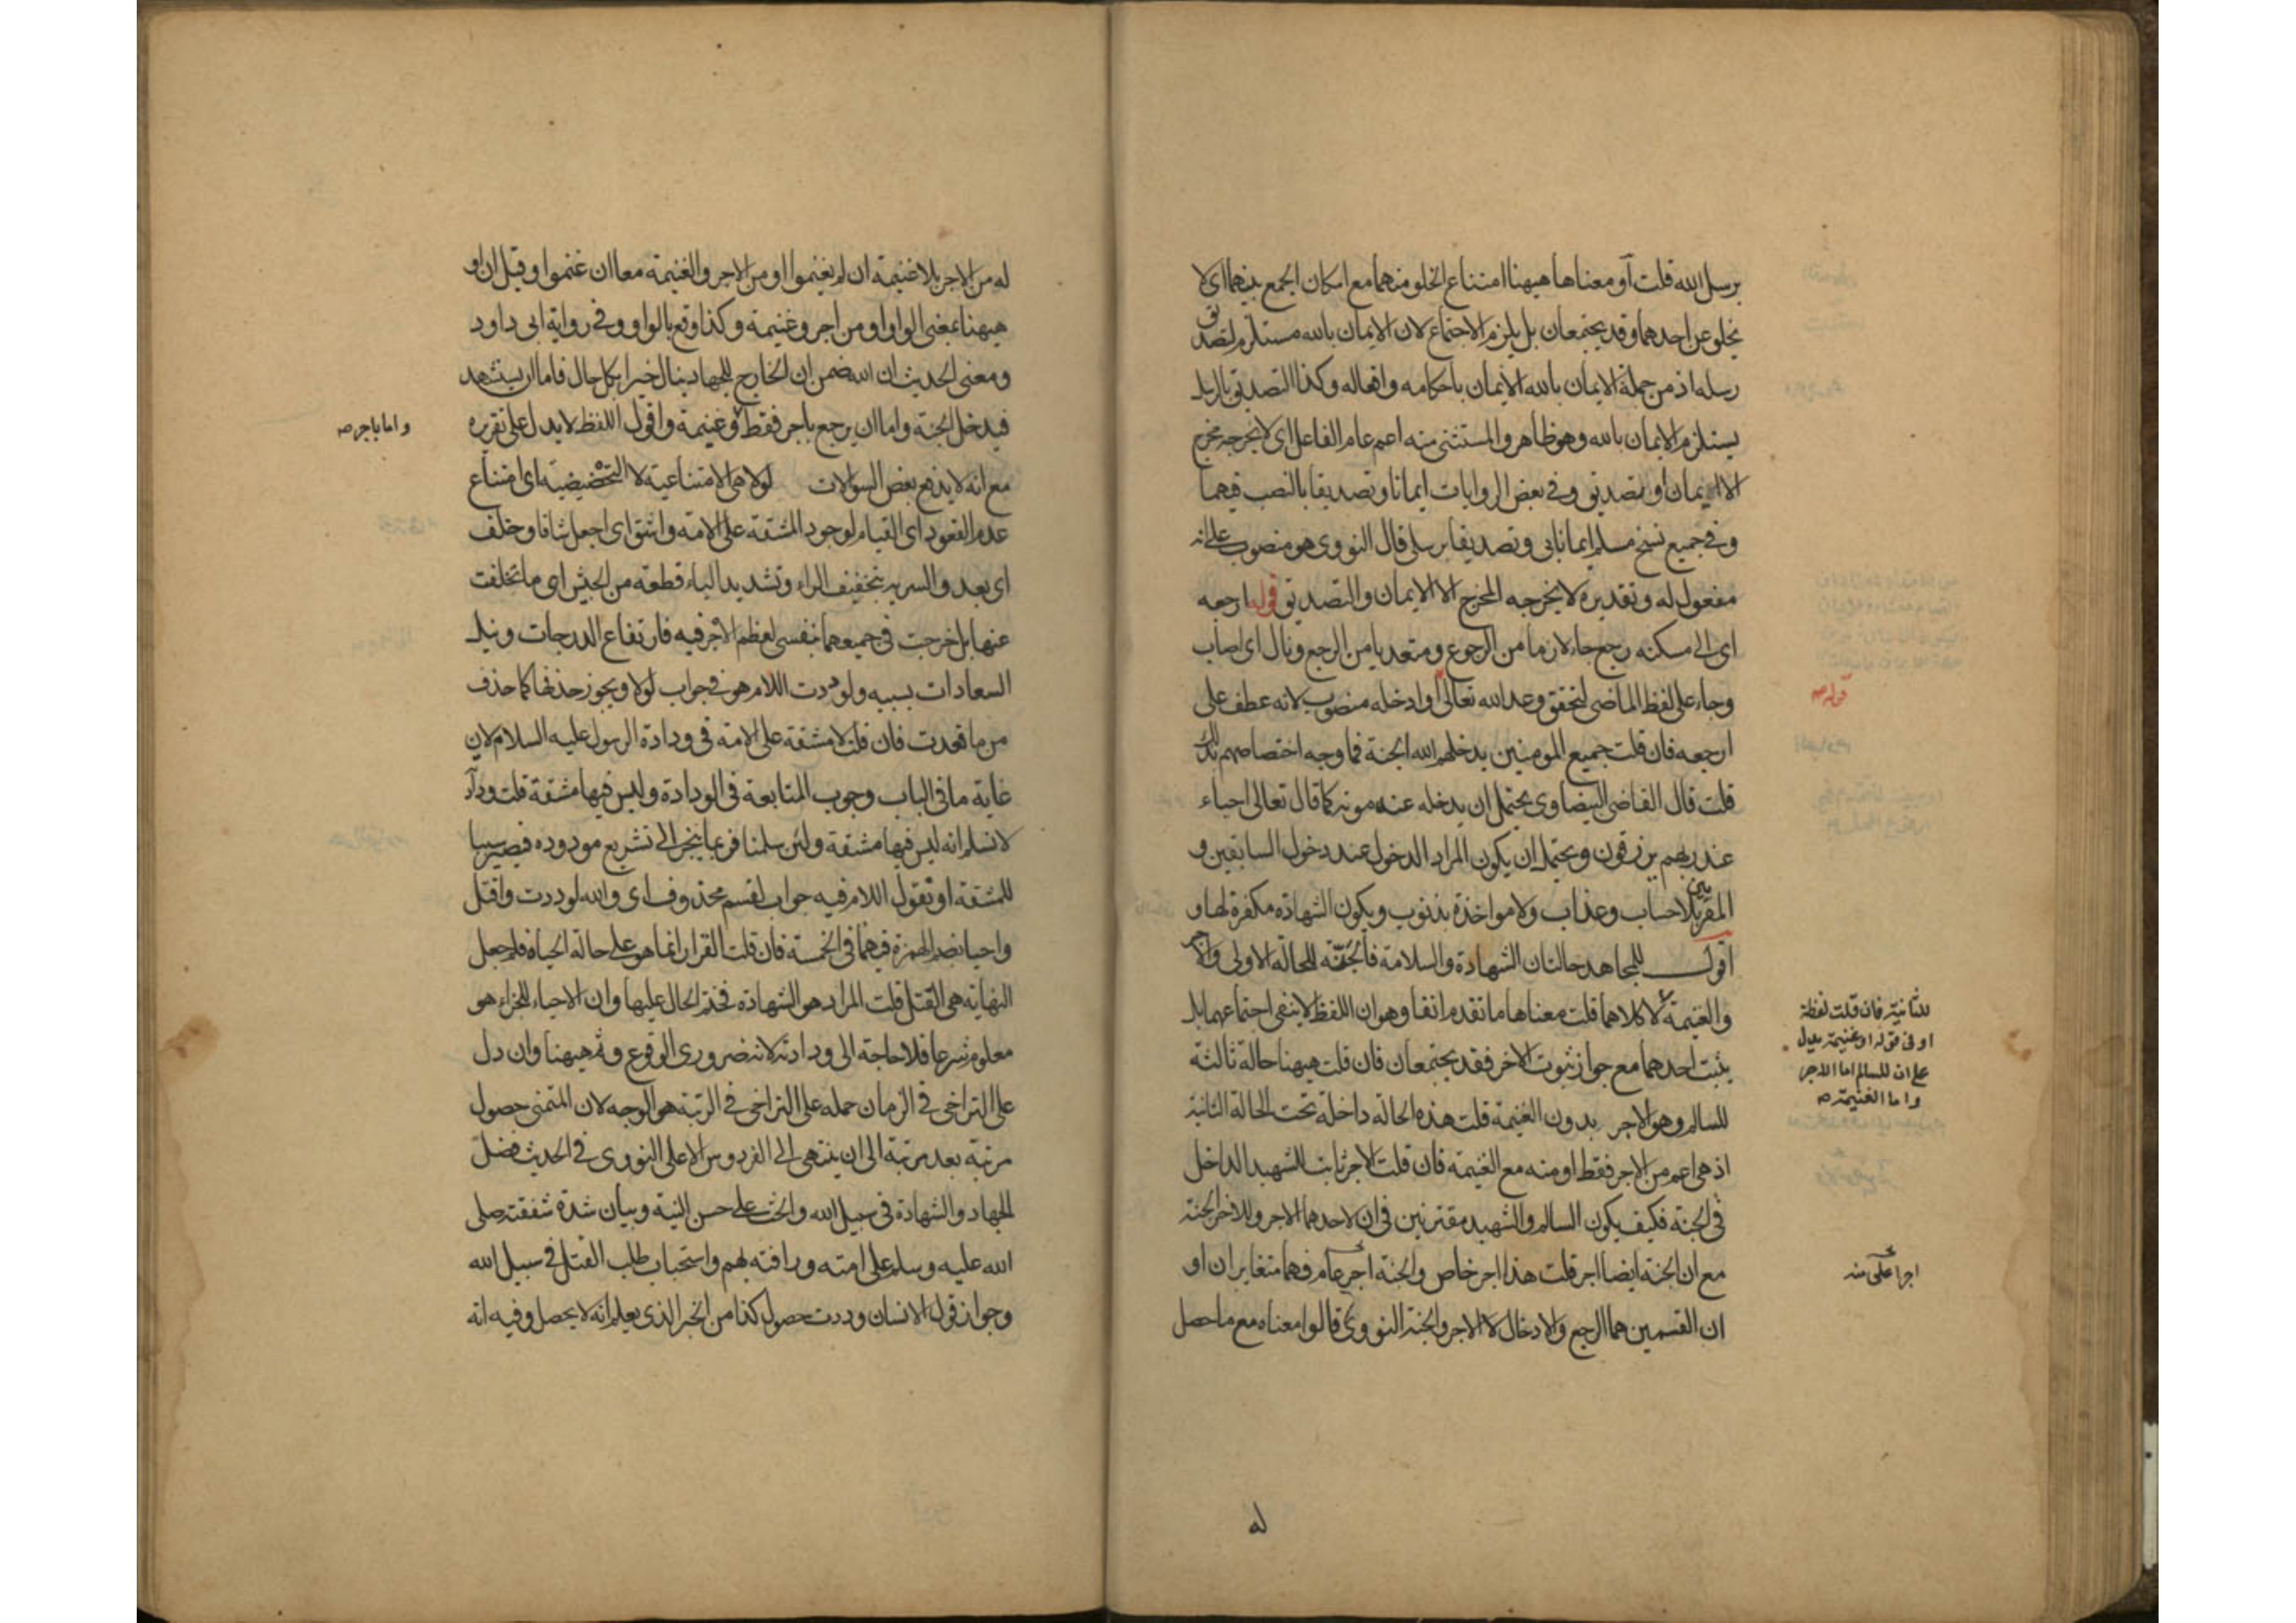 برسل الله قلت أو معناها هيهنا امتناع الخلو منهما مع امكان الجمع بينهما اى لا
يخلو عن احدهما وقد يجتمعان بل يلزم الاجتماع لان الايمان بالله مستلزم لتصديق
رسله اذ من جملة الايمان بالله الايمان باحكامه وافعاله وكذا التصديق بالرسل
يستلزم الايمان بالله وهو ظاهر والمستثنى منه اعم عام الفاعل اى لا يخرجه مخرج
الا الايمان او تصديق وفى بعض الروايات ايمانا وتصديقا بالنصب فيهما
وفى جميع نسخ مسلم ايمانا بى وتصديقا برسلى قال النووى هو منصوب على انه
مفعول له وتقديره لا يخرجه المخرج الا الايمان والتصديق قوله ارجعه
اى الى مسكنه رجع جاء لازما من الرجوع ومتعديا من الرجع ونال اى اصاب
وجاء على لفظ الماضى لتحقق وعد الله تعالى او ادخله منصوب لانه عطف على
قوله صه
ارجعه فان قلت جميع المومنين يدخلهم الله الجنة فما وجه اختصاصهم بذلك
قلت قال القاضى البيضاوى يحتمل ان يدخله عند موته كما قال تعالى احياء
عند ربهم يرزقون ويحتمل ان يكون المراد الدخول عند دخول السابقين و
المقربين بلا حساب وعذاب ولا مواخذة بذنوب ويكون الشهادة مكفرة لها و
اقول للمجاهد حالتان الشهادة والسلامة فالجنة للحالة الاولى والاجر
والغنيمة لا كلاهما قلت معناها ما تقدم انفا وهو ان اللفظ لا ينفى اجتماعهما بل
للثانية فان قلت لفظة
او فى قوله او غنيمة يدل
على ان للسالم اما الاجر
واما الغنيمة صه
يثبت احدهما مع جواز ثبوت الاخر فقد يجتمعان فان قلت هيهنا حالة ثالثة
للسالم وهو الاجر بدون الغنيمة قلت هذه الحالة داخلة تحت الحالة الثانية
اذ هى اعم من الاجر فقط او منه مع الغنيمة فان قلت الاجر ثابت للشهيد الداخل
فى الجنة فكيف يكون السالم والشهيد مفترقين فى ان لاحدهما الاجر وللاخر الجنة
مع ان الجنة ايضا اجر قلت هذا اجر خاص والجنة اجر عام فهما متغايران او
اجر اعلى منه
ان القسمين هما الرجع والادخال لا الاجر والجنة النووى قالوا معناه مع ما حصل
له
له من الاجر بلا غنيمة ان لم يغنموا او من الاجر والغنيمة معا ان غنموا وقيل ان او
هيهنا بمعنى الواو او من اجر وغنيمة وكذا وقع بالواو وفى رواية ابى داود
ومعنى الحديث ان الله ضمن ان الخارج للجهاد ينال خيرا بكل حال فاما ان يستشهد
فيدخل الجنة واما ان يرجع باجر فقط وغنيمة واقول اللفظ لا يدل على تقريره
واما باجر صه
مع انه لا يدفع بعض السوالات لولا هى الامتناعية لا التحضيضية اى امتناع
عدم القعود اى القيام لوجود المشقة على الامة واشق اى اجعل شاقا وخلف
اى بعد والسرية بتخفيف الراء وتشديد الياء قطعة من الجيش اى ما تخلفت
عنها بل خرجت فى جميعها بنفسى لعظم الاجر فيه فارتفاع الدرجات ونيل
السعادات بسببه ولوددت اللام هو فى جواب لولا ويجوز حذفها كما حذف
من ما قعدت فان قلت لا مشقة على الامة فى ودادة الرسول عليه السلام لان
غاية ما فى الباب وجوب المتابعة فى الودادة وليس فيها مشقة قلت
لا نسلم انه ليس فيها مشقة ولئن سلمنا فربما ينجر الى تشريع مودوده فيصير سببا
للمشقة او تقول اللام فيه جواب لقسم محذوف اى والله لوددت واقتل
واحيا بضم الهمزة فيهما فى الخمسة فان قلت القرار انما هو على حالة الحياة فلم جعل
النهاية هى القتل قلت المراد هو الشهادة فختم الحال عليها وان الاحياء للجزاء هو
معلوم شرعا فلا حاجة الى ودادته لانه ضرورى الوقوع وثم هيهنا وان دل
على التراخى فى الزمان حمله على التراخى فى الرتبة هو الوجه لان المتمنى حصول
مرتبة بعد مرتبة الى ان ينتهى الى الفردوس الاعلى النووى فى الحديث فضل
الجهاد والشهادة فى سبيل الله والحث على حسن النية وبيان شدة شفقته صلى
الله عليه وسلم على امته ورافته بهم واستحباب طلب القتل فى سبيل الله
وجواز قول الانسان وددت حصول كذا من الخير الذى يعلم انه لا يحصل وفيه انه